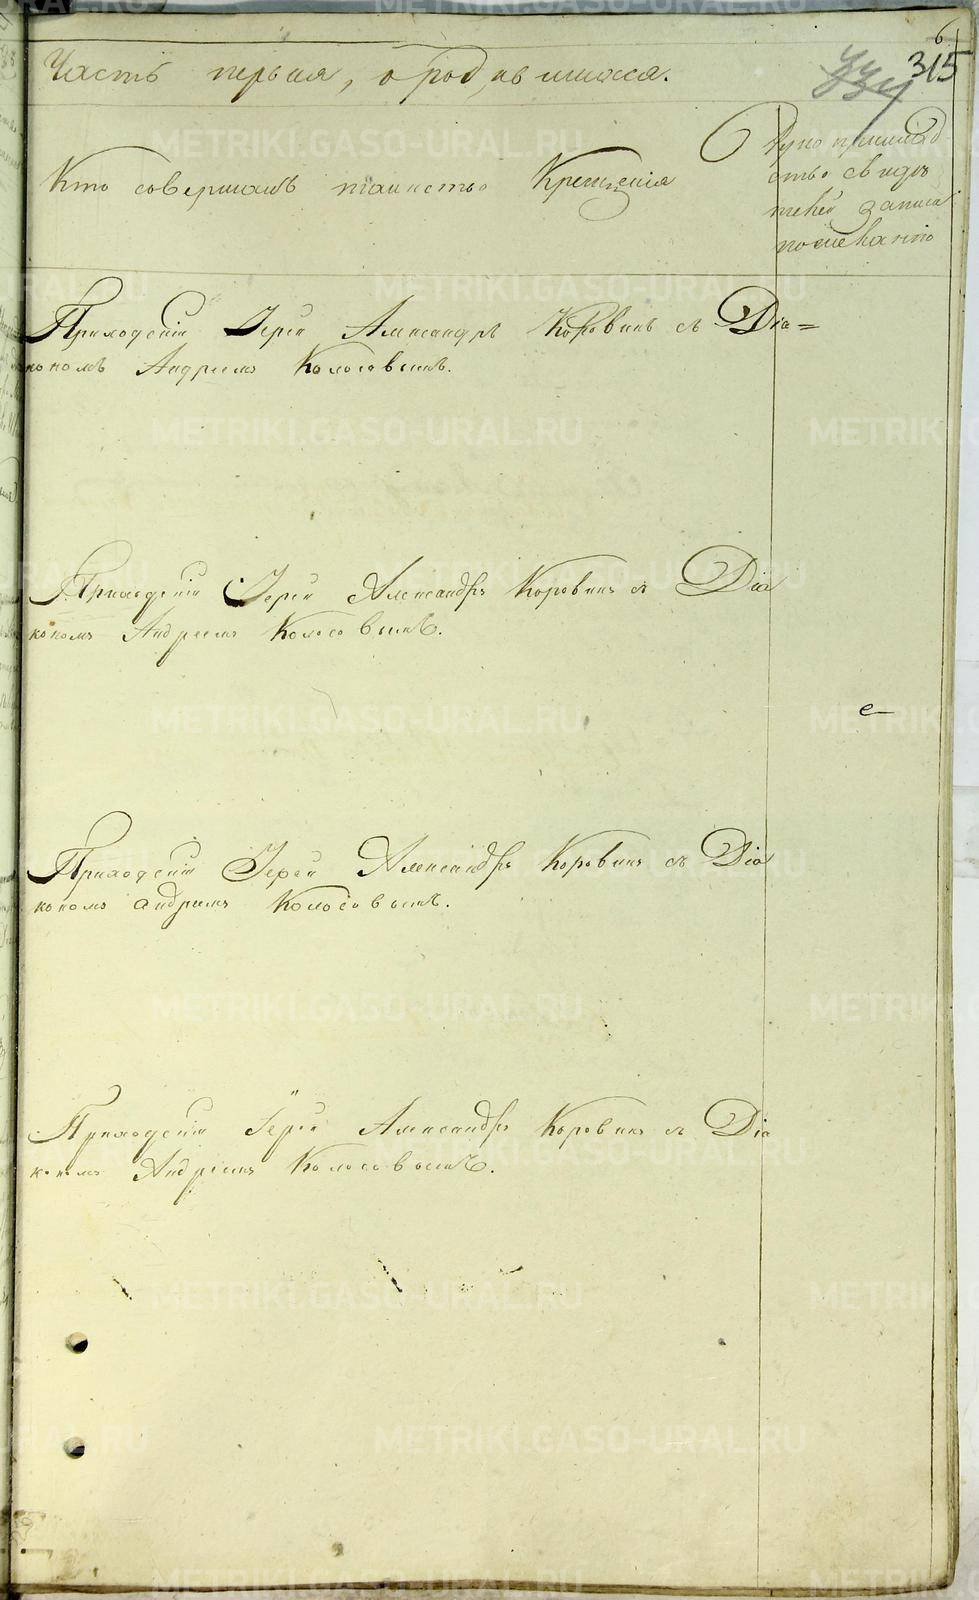 6
315
Часть первая, о родившихся.
Кто совершалъ таинство Крещенія
Рукоприкладство свидѣтелей записи по желанію
Приходскій Іерей Александръ Коровинъ съ Діа=
кономъ Андреемъ Колосовымъ.
Приходскій Іерей Александръ Коровинъ съ Діа
кономъ Андреемъ Колосовымъ.
Приходскій Іерей Александръ Коровинъ съ Діа
кономъ андреемъ Колосовымъ.
Приходскій Іерей Александръ Коровинъ съ Діа
кономъ Андреемъ Колосовымъ.
METRIKI.GASO-URAL.RU